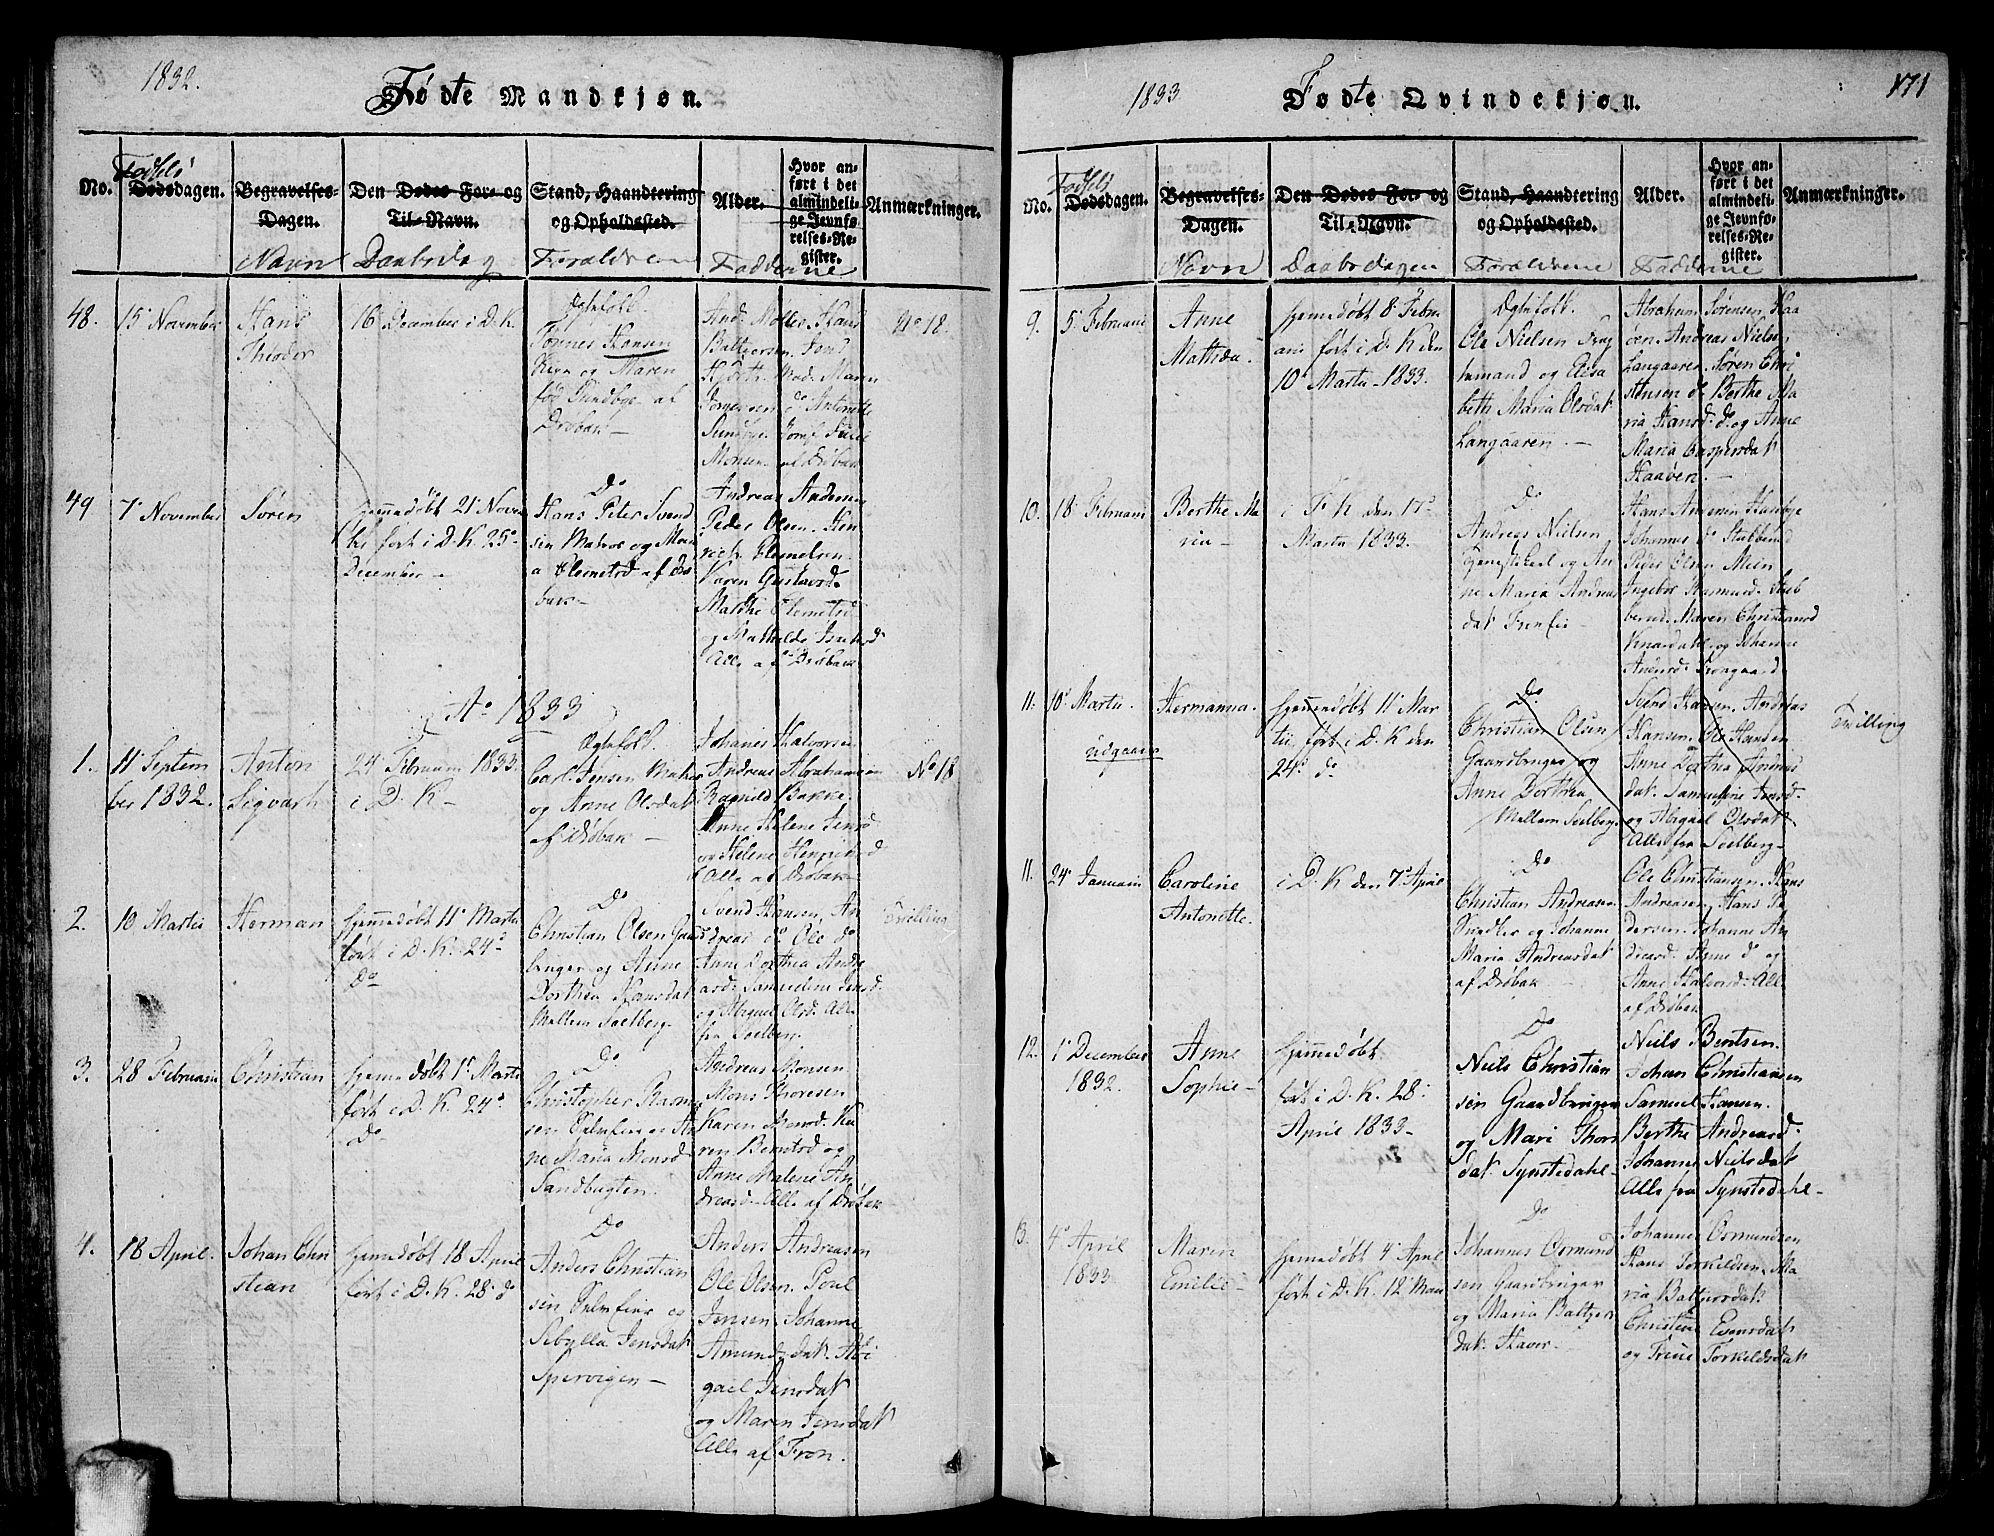 1832.
Fødte Mandkjøn.
Fødsels
No.
Dødsdagen.
Begravelses-
Dagen.
Navn
Den Dødes For- og
Til-Navn.
Daabsdag
Stand, Haandtering
og Opholdssted.
Forældrene
Alder.
Fadderne
Hvor an-
ført i det
almindeli-
ge Jevnfø-
relses-Re-
gister.
Anmærkninger.
48.
15 November
Hans
Theodor
16 December i D. K.
Ægtefolk
Tønnes Hansen
og Maren
fød Sundbye af
Drøbak -
And: Møller, Hans
Baltzersen.
Mad. Maren
Jørgensen Antonette
Sundbye
Monsen af Drøbak
No 18.
49
7 November
Søren
hjemedøbt 21 Novem
ber ført i D. K. 25
December -
Do
Hans Peter Svend
sen Matros og Mari
a Clemetsd af Drø
bak -
Andreas Andersen
Peder Olsen. Hen
rich Clemetsen
Karen Gustavsd.
Mathe Clemetsd
og Mathilde
Alle af Drøbak
Ao 1833
1.
11 Septem
ber 1832.
Anton
Sigvarth
24 Februarii 1833.
i D. K -
Ægtefolk
Carl Jensen Matros
og Anne Olsdat
af Drøbak -
Johanes Halvorsen
Andreas Abrahamsen
Ragnild Bakke.
Anne Helene Jensd
og Helene Henrichsd
Alle af Drøbak
No 18
2.
10 Martii
Herman
hjemmedøbt 11 Martii
ført i D. K. 24
Do
Do
Christian Olsen Gaard
bruger og Anne
Dorthea Hansdat
Mellem Soelberg
Svend Hansen, An
dreas do Ole do
Anne Dorthea Andre
asd: Samueline Jensd.
og Abigael Olsd: Alle
fra Soelberg.
Tvilling
3.
28 Februarii
Christian
hjemedøbt 1 Martii
ført i D. K. 24
Do
Do
Christopher Rasmus
sen Selveier og An
ne Maria Monsd
Sandbugten.
Andreas Monsen
Mons Thoresen
Karen Monsd. Ka
ren Berntsd og
Anne Malene An
dreasd - Alle af Drøbak
4.
18 April.
Johan Chri
stian
hjemedøbt 18 April
ført i D. K. 28 d
Do
Anders Christian
sen Selveier og
Sibylla Jensdat
Spervigen -
Anders Andreasen
Ole Olsen. Poul
Jensen. Johanne
Amundsdat. Abi
gael Jensdat
og Maren Jensdat
Alle af Fron.
171
1833
Fødte Qvindekjøn.
Fødsels
No.
Dødsdagen.
Begravelses-
Dagen.
Navn
Den Dødes For- og
Til-Navn.
Daabsdagen
Stand, Haandtering
og Opholdssted.
Forældrene
Alder.
Fadderne
Hvor an-
ført i det
almindeli-
ge Jevnfø-
relses-Re-
gister.
Anmærkninger.
9.
5 Februarii
Anne
Mathea.
hjemedøbt 8 Febru
arii ført i D. K den
10 Martii - 1833.
Ægtefolk.
Ole Nielsen Dag
lemand og Elisa
beth Maria Olsdat
Langaaren. -
Abraham Sørensen, Haa
øen. Andreas Nielsen
Langaaren. Søren Chri
stensen do Berthe Ma
ria Hansd. do og Anne
Maria Caspersdat
Haaøen. -
10.
18 Februarii
Berthe Ma
ria -
i F K den 17
Martii 1833.
Do
Andreas Nielsen
Tjenestekarl og An
ne Maria Andreas
dat
Hans Andersen
Johannes do Stubberud
Peder Olsen
Ingebor Rasmusd. Stub
berud. Maren Christiansd
Knardahl og Johanne
Andersd. Frongaard
11.
10 Martii.
udgaaer
Hermanna.
hjemmedøbt 11 Mar
tii ført i D. K den
24 do
Do
Christian Olsen
Gaardbruger og
Anne Dorthea
Mellem Soelberg
Svend Hansen, Andreas
Hansen. Ole Hansen
Anne Dorthea Andreas
dat. Samueline Jensd.
og Abigael Olsdat
Alle fra Soelberg -
Tvilling
11.
24 Januarii
Caroline
Antonette.
i D. K den 7 April
Do
Christian Andreasen
Snedker og Johanne
Maria Andreasdat
af Drøbak -
Ole Christiansen. Hans
Andreasen, Hans Pe
dersen. Johanne An
dreasd. Anne do og
Anne Halvorsd. Alle
af Drøbak
12.
1 December
1832.
Anne
Sophie -
hjemmedøbt
ført i D. K. 28
April 1833 -
Do
Niels Christian
sen Gaardbruger
og Mari Thors
dat. Synstedahl -
Niels Bentsen.
Johan Christiansen
Samuel Hansen.
Berthe Andreasd.
Johanne Nielsdat
Alle fra Synstedahl -
13.
4 April
1833
Maren
Emilie -
hjemmedøbt 4 April
ført i D. K. 12 Maii
Do
Johannes Osmund
sen Gaardbruger
og Maria Baltzers
dat. Haver -
Johannes Osmundsen
Hans Torkildsen. Ma
ria Baltzersdat.
Christine Evensdat
og Trine Torkildsdat